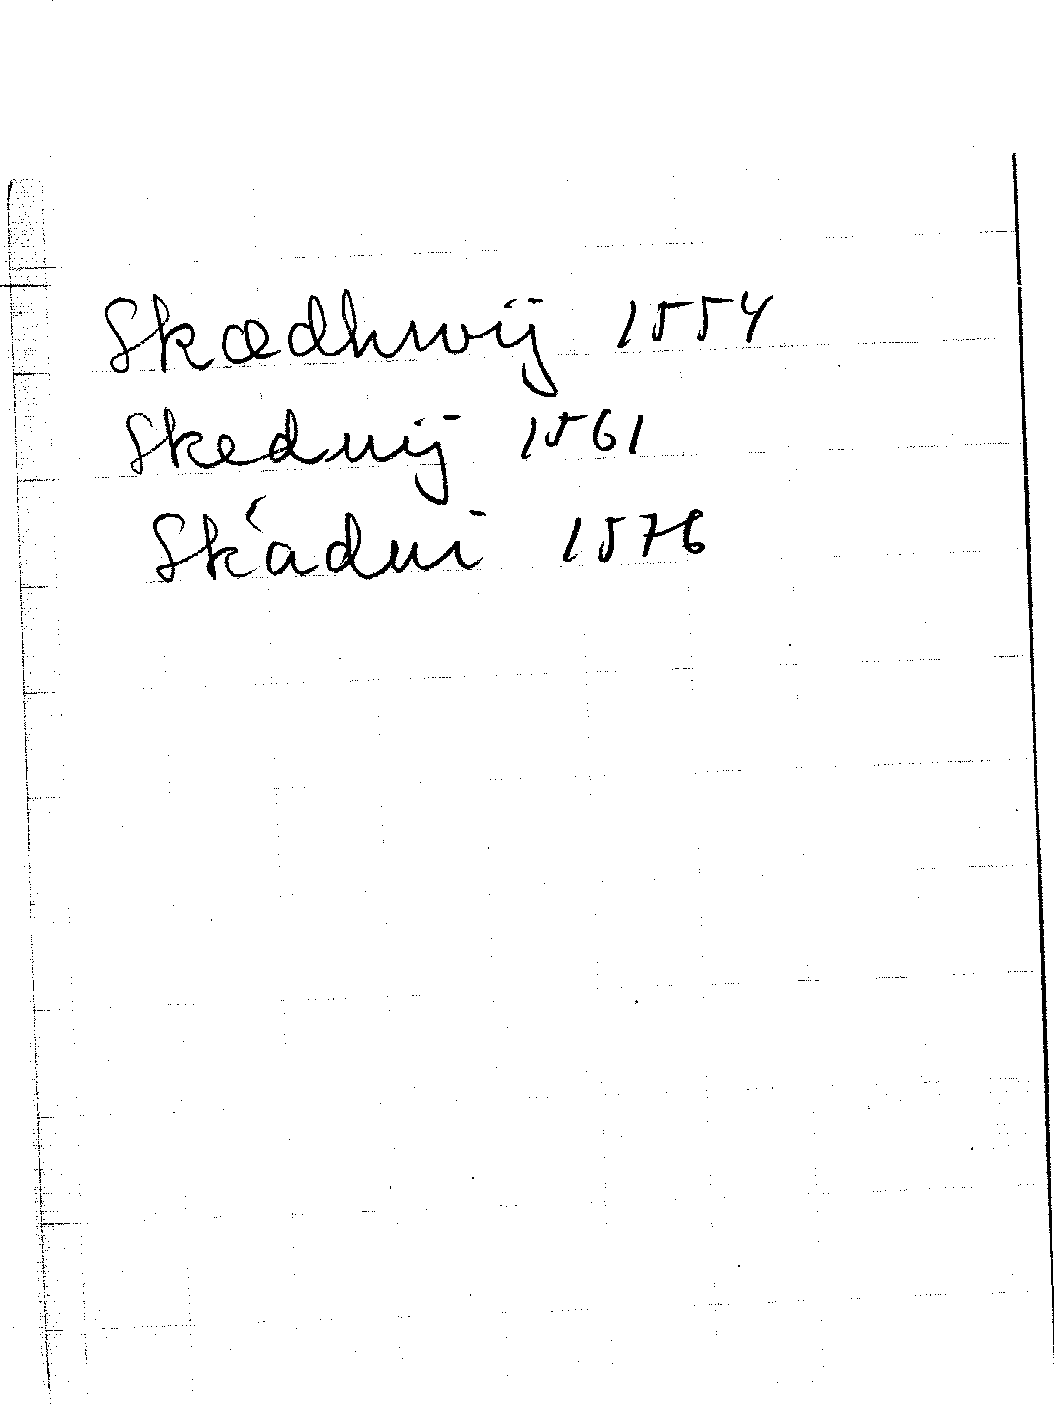 Skædhwij 1554
Skeduij 1561
Skádui 1576